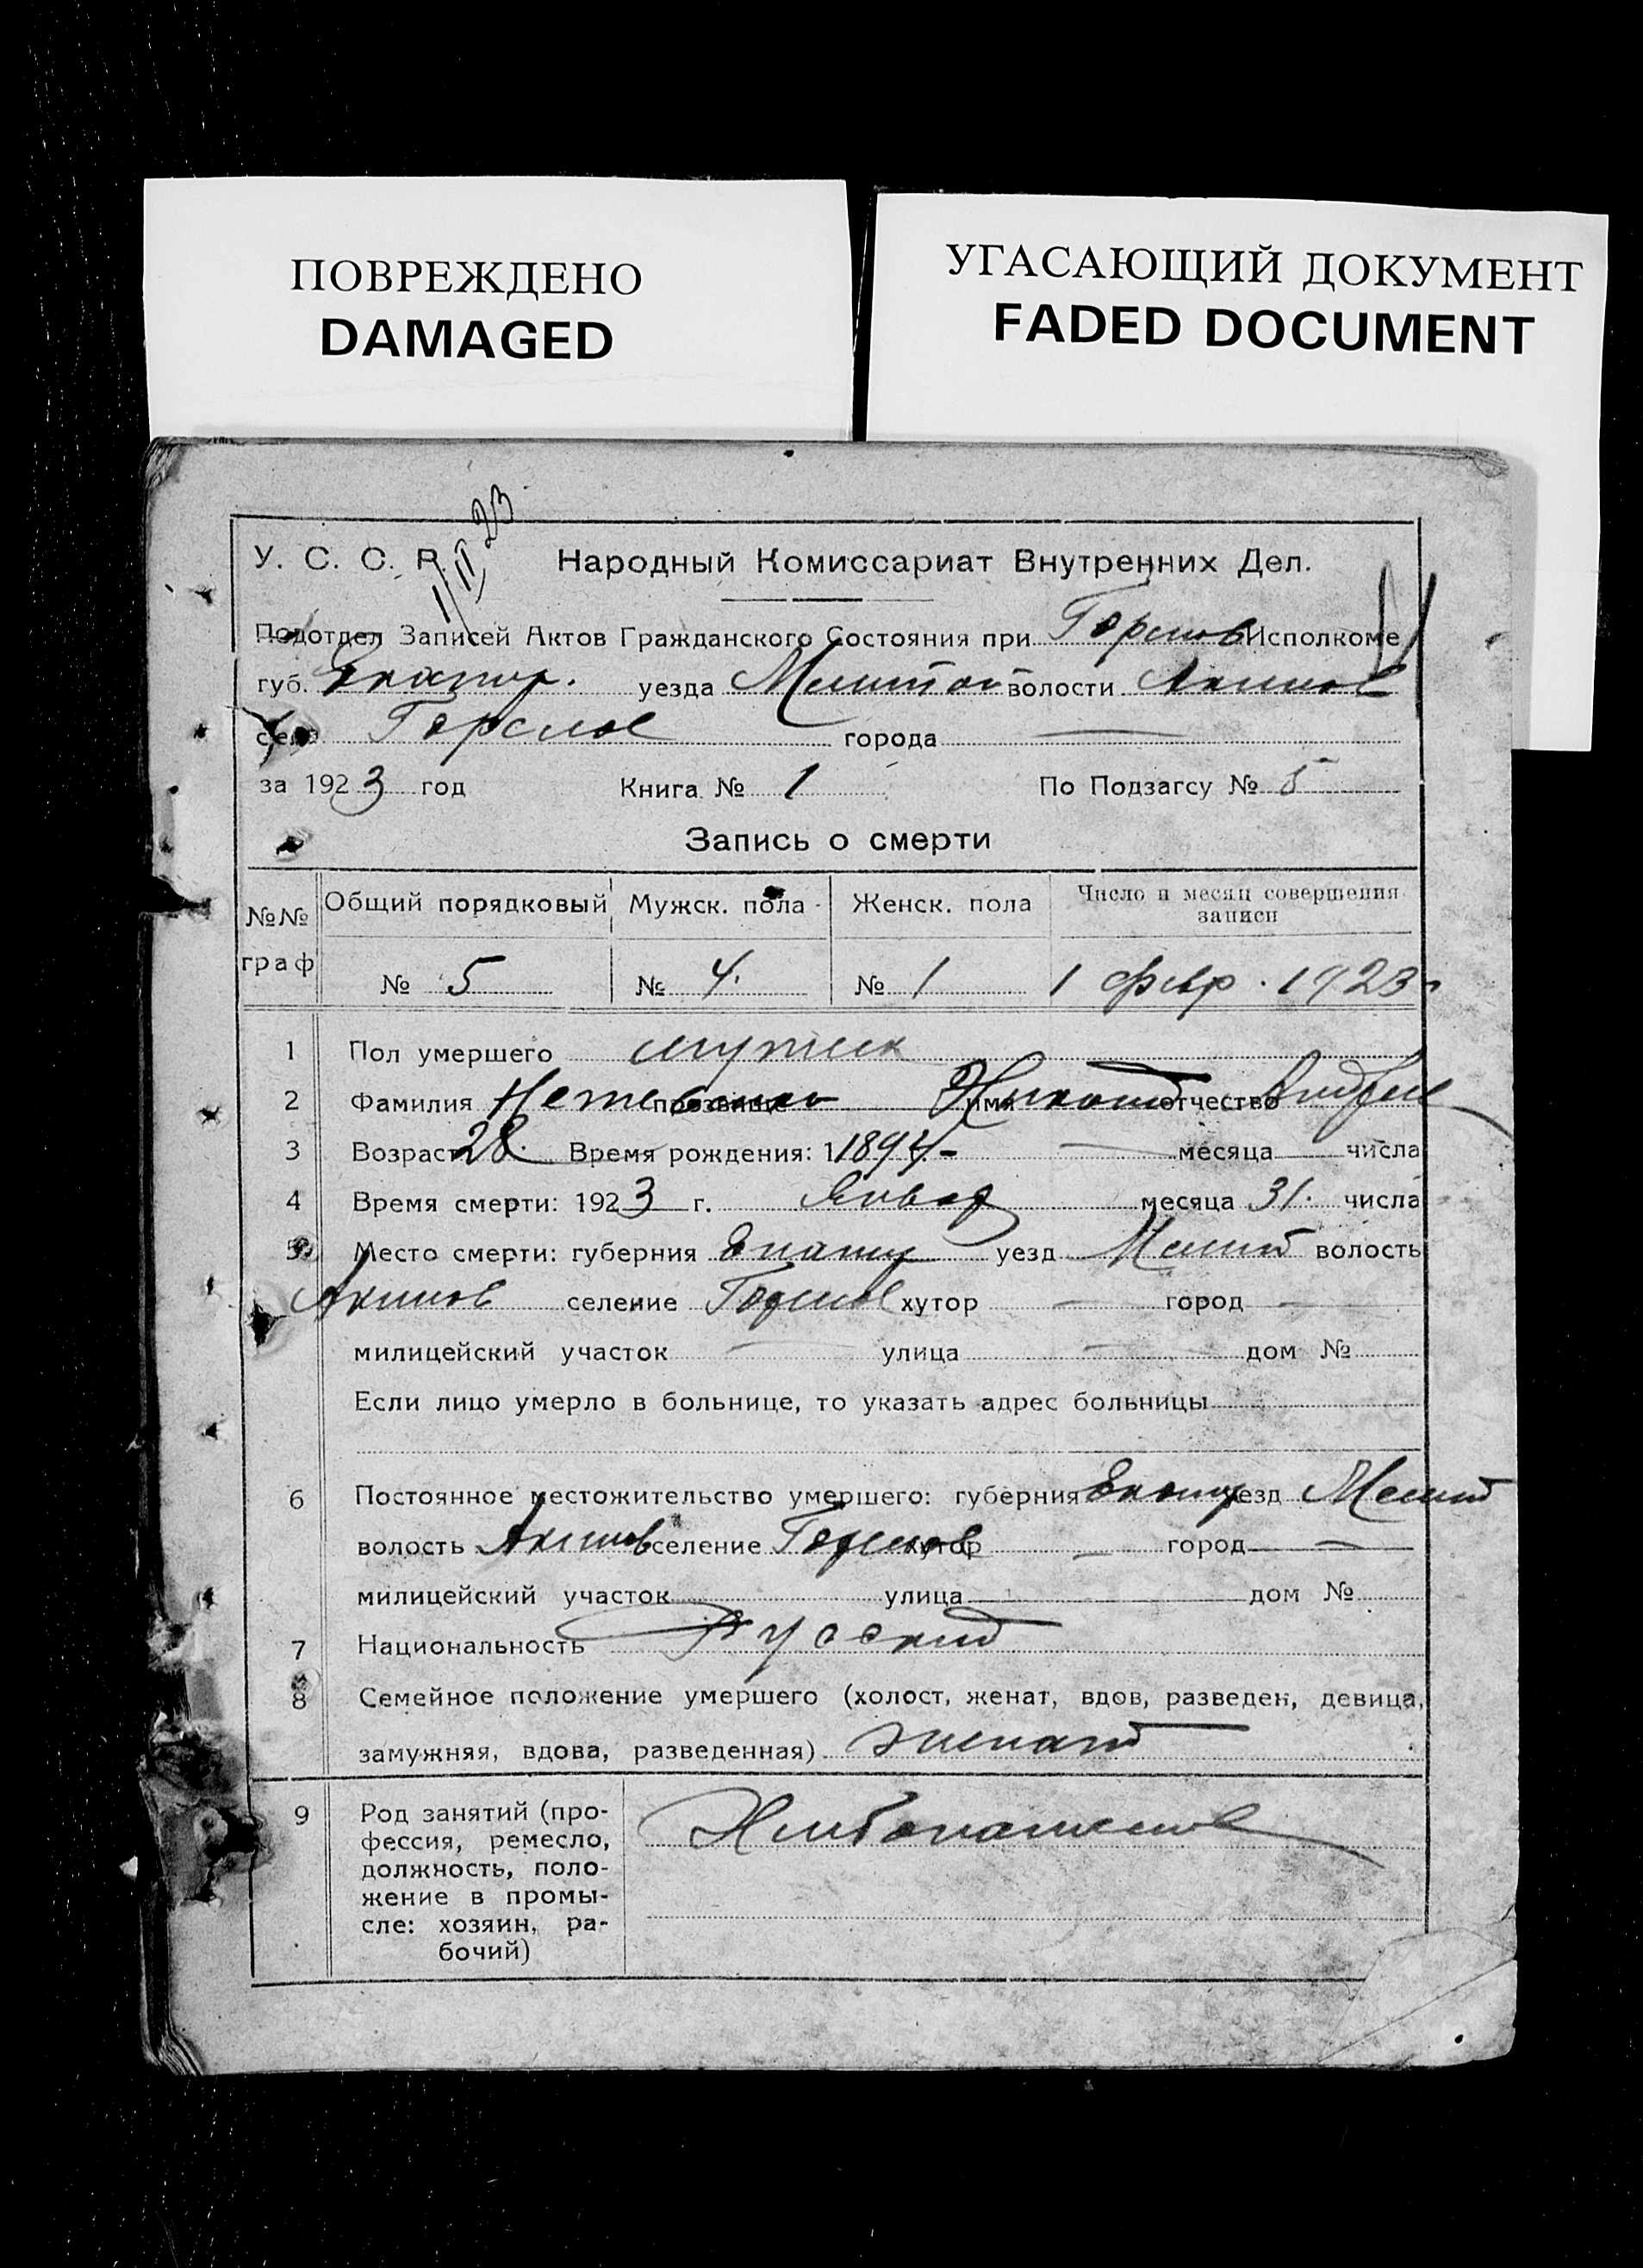 ПОВРЕЖДЕНО
DAMAGED
УГАСАЮЩИЙ ДОКУМЕНТ
FADED DOCUMENT
1/II 23
У. С. С. Р. Народный Комиссариат Внутренних Дел.
Подотдел Записей Актов Гражданского Состояния при Исполкоме
губ. Екатер. уезда Мелитоп волости Акимов
село города —
за 1923 год Книга № 1 По Подзагсу № 5
Запись о смерти
№№ граф Общий порядковый Мужск. пола Женск. пола Число и месяц совершения записи
№ 5 № 4. № 1 1 февр. 1923 г
1 Пол умершего мужск
2 Фамилия прозвище имя отчество Андрее
3 Возраст 28. Время рождения: 1 1894 — месяца числа
4 Время смерти: 1923 г. Январ месяца 31. числа
5 Место смерти: губерния Екатер уезд Мелит волость
Акимов селение хутор — город —
милицейский участок — улица — дом №
Если лицо умерло в больнице, то указать адрес больницы
6 Постоянное местожительство умершего: губерния Екатер уезд Мелит
волость Акимов селение хутор — город —
милицейский участок улица дом №
7 Национальность Русский
8 Семейное положение умершего (холост, женат, вдов, разведен, девица,
замужняя, вдова, разведенная) женат
9 Род занятий (про-
фессия, ремесло,
должность, поло-
жение в промы-
сле: хозяин, ра-
бочий)
Хлебопашение